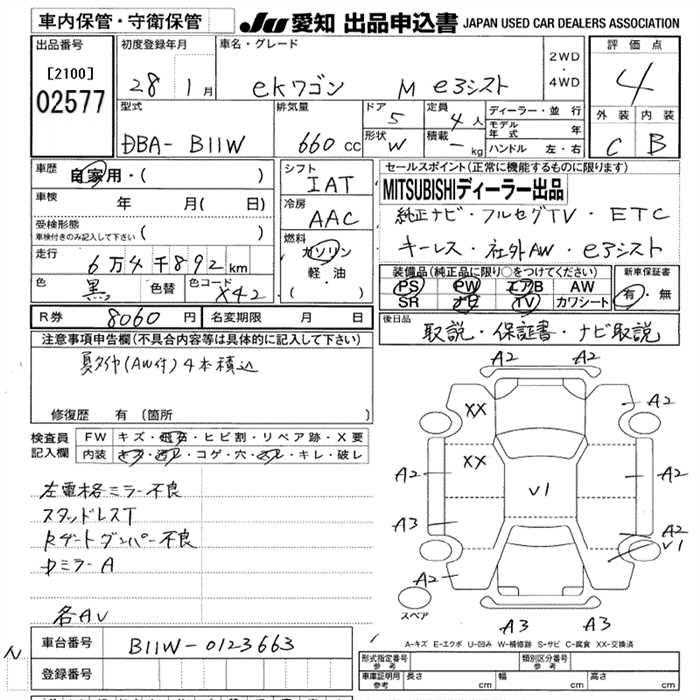 車内保管・守衛保管
JU 愛知 出品申込書 JAPAN USED CAR DEALERS ASSOCIATION
出品番号
[2100]
02577
初度登録年月
28 1月
車名・グレード
eKワゴン M e3シスト
2WD
・
4WD
評価点
4
外装 内装
C B
型式
DBA- B11W
排気量
660 cc
ドア
5
形状
W
定員
4 人
積載
- kg
ディーラー・並行
モデル年式 年
ハンドル 左・右
車歴
自家用・( )
車検 年 月( 日)
受検形態
車検付きのみ記入して下さい ( )
走行
6万4千892 km
色
黒
色替
色コード
X42
シフト
IAT
冷房
AAC
燃料
ガソリン
軽・油
( )
セールスポイント(正常に機能するものに限ります)
MITSUBISHIディーラー出品
純正ナビ・フルセグTV・ETC
キーレス・社外AW・e3シスト
装備品(純正品に限り○をつけてください)
PS PW エアB AW
SR ナビ TV カワシート
新車保証書
有・無
R券 8060 円 名変期限 月 日
後日品
取説・保証書・ナビ取説
注意事項申告欄(不具合内容等は具体的に記入して下さい)
夏タイヤ(AW付)4本積込
修復歴 有(箇所 )
検査員
記入欄
FW キズ・飛石・ヒビ割・リペア跡・X要
内装 キズ・汚レ・コゲ・穴・スレ・キレ・破レ
左電格ミラー不良
スタッドレスT
Rゲートダンパー不良
ミラーA
各AU
A2 A2
A2
XX
A2
XX
A2
A2
V1
A3
A2
A2
V1
A2
スペア
A3 A3
A-キズ E-エクボ U-凹み W-補修跡 S-サビ C-腐食 XX-交換済
N
車台番号 B11W-0123663
登録番号
形式指定番号
参考
類別区分番号
参考
車庫証明用
参考
長さ cm 幅 cm 高さ cm